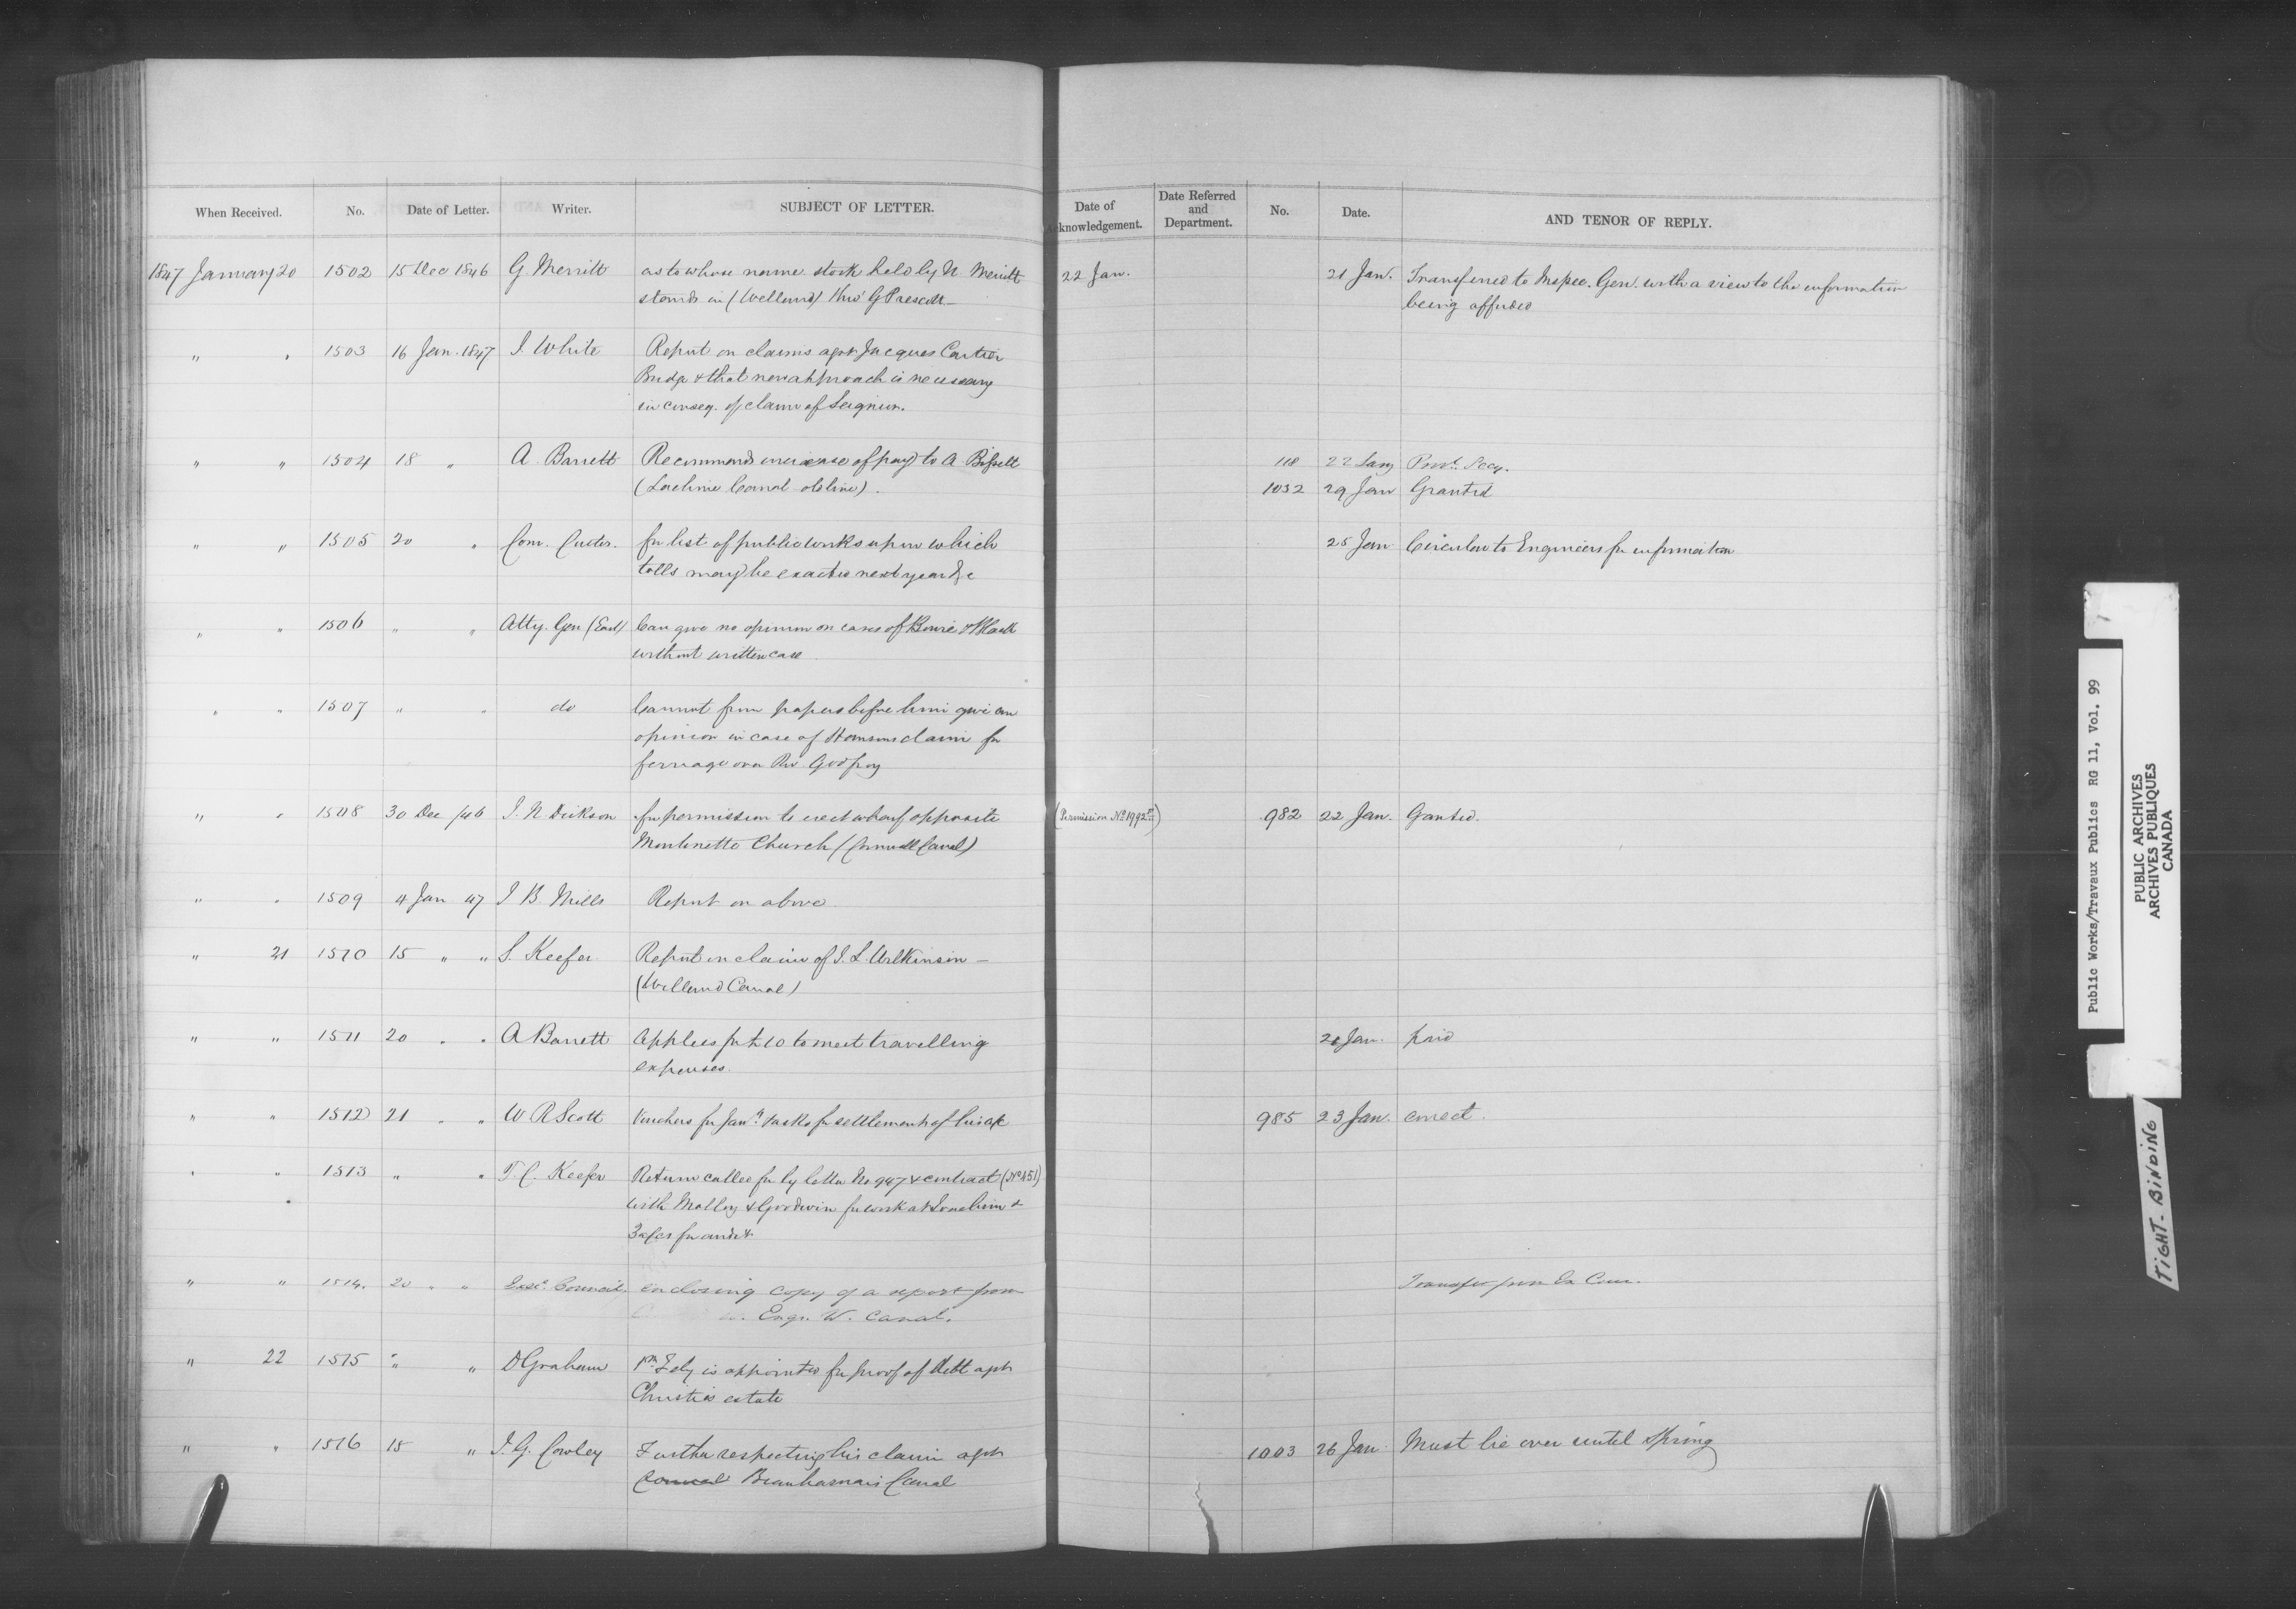 When Received. No. Date of Letter. Writer. SUBJECT OF LETTER. Date of Acknowledgement. Date Referred and Department. No. Date. AND TENOR OF REPLY.
1847 January 20 1502 15 Dec 1846 G Merritt as to whose name stock held by N Merritt 22 Jan. 21 Jan. Transferred to Inspec. Gen. with a view to the information
stands in (Welland) thro' G Prescott — being afforded
" " 1503 16 Jan. 1847 J. White Report on claims agst Jacques Cartier
Bridge & that new approach is necessary
in conseq. of claim of Seignior.
" " 1504 18 " A. Barrett Recommends increase of pay to A. Bissett 118 22 Jany Provl. Secy.
(Lachine Canal 1032 29 Jan Granted
" " 1505 20 " Com. Customs. for list of public works upon which 25 Jan Circular to Engineers for information
tolls may be exacted next year &c
" " 1506 " " Atty. Gen (East) Can give no opinion on cases of Bowie & Black
without written case
" " 1507 " " do Cannot from papers before him give an
opinion in case of claim for
ferriage over Riv. Godfroy
" " 1508 30 Dec /46 J. N Dickson for permission to erect wharf opposite (Permission No. 1992) 982 22 Jan. Granted.
Church (Cornwall Canal)
" " 1509 4 Jan 47 J B Mills Report on above
" 21 1510 15 " " S. Keefer Report on claim of J. L. Wilkinson —
(Welland Canal)
" " 1511 20 " " A Barrett Applies for £10 to meet travelling 21 Jan. paid
expenses.
" " 1512 21 " " W R Scott Vouchers for Jany. & asks for settlement of his a/c 985 23 Jan. correct.
" " 1513 " " T. C. Keefer Return called for by letter No 947 & contract (No 451)
with Malloy & Goodwin for work at &
3 a/cs for audit
" " 1514. 20 " " Exec. Council. enclosing copy of a report from Transfer from Ex Coun.
Engr. W. Canal.
" 22 1515 " " D Graham 1st Feby is appointed for proof of debt agst
Christie's estate
" " 1516 15 " J. G. Cowley Further respecting his claim agst 1003 26 Jan Must lie over until Spring
Beauharnais Canal
Public Works/Travaux Publics RG 11, Vol. 99
PUBLIC ARCHIVES
ARCHIVES PUBLIQUES
CANADA
TIGHT-BINDING